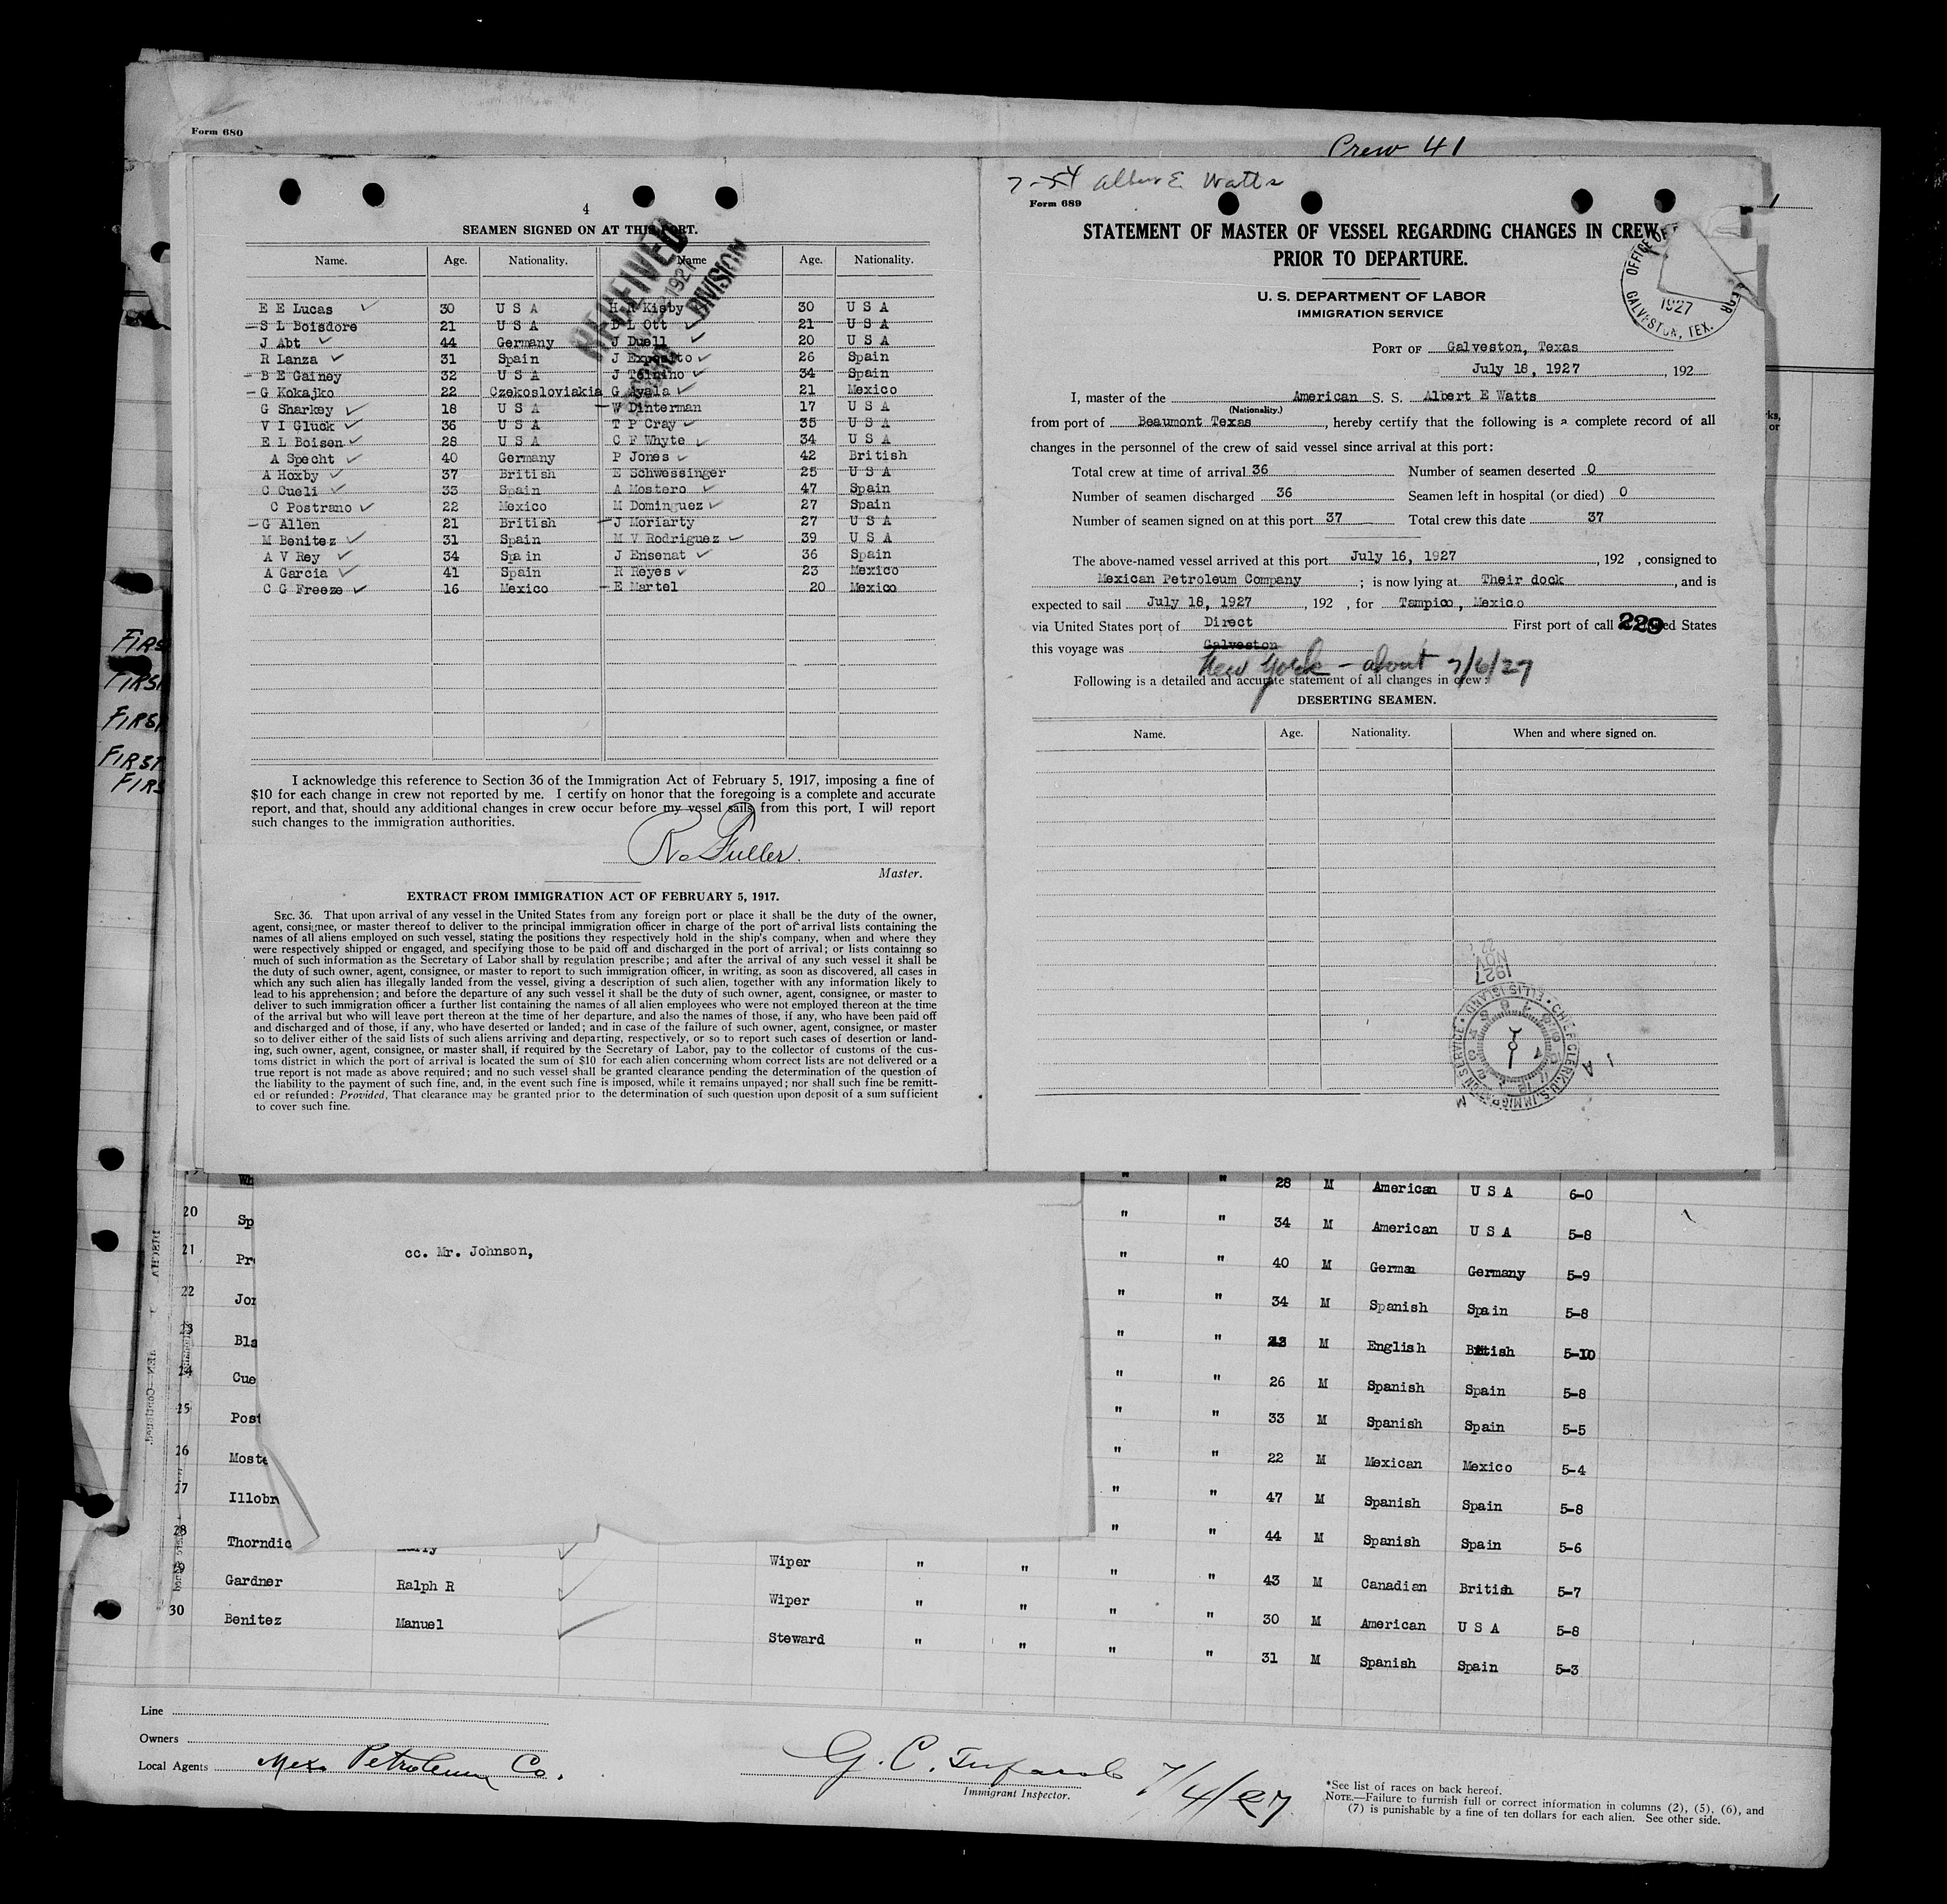 Form 680
Crew 41
4
SEAMEN SIGNED ON AT THIS PORT.
Name. Age. Nationality. Name Age. Nationality.
E E Lucas 30 U S A H Kisby 30 U S A
S L Boisdore 21 U S A D L Ott 21 U S A
J Abt 44 Germany J Duell 20 U S A
R Lanza 31 Spain J Exposito 26 Spain
B E Gainey 32 U S A J 34 Spain
G Kokajko 22 Czekosloviakia G Ayala 21 Mexico
G Sharkey 18 U S A W Dinterman 17 U S A
V I Gluck 36 U S A T P Cray 35 U S A
E L Boisen 28 U S A C F Whyte 34 U S A
A Specht 40 Germany P Jones 42 British
A Hoxby 37 British E Schwessinger 25 U S A
C Cueli 33 Spain A Mostero 47 Spain
C Postrano 22 Mexico M Dominguez 27 Spain
G Allen 21 British J Moriarty 27 U S A
M Benitez 31 Spain M V Rodriguez 39 U S A
A V Rey 34 Spain J Ensenat 36 Spain
A Garcia 41 Spain R Reyes 23 Mexico
C G Freeze 16 Mexico E Martel 20 Mexico
RECEIVED
DIVISION
I acknowledge this reference to Section 36 of the Immigration Act of February 5, 1917, imposing a fine of
$10 for each change in crew not reported by me. I certify on honor that the foregoing is a complete and accurate
report, and that, should any additional changes in crew occur before my vessel sails from this port, I will report
such changes to the immigration authorities.
Fuller.
Master.
EXTRACT FROM IMMIGRATION ACT OF FEBRUARY 5, 1917.
SEC. 36. That upon arrival of any vessel in the United States from any foreign port or place it shall be the duty of the owner,
agent, consignee, or master thereof to deliver to the principal immigration officer in charge of the port of arrival lists containing the
names of all aliens employed on such vessel, stating the positions they respectively hold in the ship's company, when and where they
were respectively shipped or engaged, and specifying those to be paid off and discharged in the port of arrival; or lists containng so
much of such information as the Secretary of Labor shall by regulation prescribe; and after the arrival of any such vessel it shall be
the duty of such owner, agent, consignee, or master to report to such immigration officer, in writing, as soon as discovered, all cases in
which any such alien has illegally landed from the vessel, giving a description of such alien, together with any information likely to
lead to his apprehension; and before the departure of any such vessel it shall be the duty of such owner, agent, consignee, or master to
deliver to such immigration officer a further list containing the names of all alien employees who were not employed thereon at the time
of the arrival but who will leave port thereon at the time of her departure, and also the names of those, if any, who have been paid off
and discharged and of those, if any, who have deserted or landed; and in case of the failure of such owner, agent, consignee, or master
so to deliver either of the said lists of such aliens arriving and departing, respectively, or so to report such cases of desertion or land-
ing, such owner, agent, consignee, or master shall, if required by the Secretary of Labor, pay to the collector of customs of the cus-
toms district in which the port of arrival is located the sum of $10 for each alien concerning whom correct lists are not delivered or a
true report is not made as above required; and no such vessel shall be granted clearance pending the determination of the question of
the liability to the payment of such fine, and, in the event such fine is imposed, while it remains unpayed; nor shall such fine be remitt-
ed or refunded: Provided, That clearance may be granted prior to the determination of such question upon deposit of a sum sufficient
to cover such fine.
FIRS
FIRS
FIRS
FIRST
FIRS
Albert E. Watts
Form 689
STATEMENT OF MASTER OF VESSEL REGARDING CHANGES IN CREW
PRIOR TO DEPARTURE.
U. S. DEPARTMENT OF LABOR
IMMIGRATION SERVICE
OFFICE OF
1927
GALVESTON, TEX.
PORT OF Galveston, Texas
July 18, 1927, 192
I, master of the American S. S. Albert E Watts
(Nationality.)
from port of Beaumont Texas, hereby certify that the following is a complete record of all
changes in the personnel of the crew of said vessel since arrival at this port:
Total crew at time of arrival 36 Number of seamen deserted 0
Number of seamen discharged 36 Seamen left in hospital (or died) 0
Number of seamen signed on at this port 37 Total crew this date 37
The above-named vessel arrived at this port July 16, 1927, 192 , consigned to
Mexican Petroleum Company ; is now lying at Their dock, and is
expected to sail July 18, 1927, 192 , for Tampico, Mexico
via United States port of Direct First port of call 229 ed States
this voyage was Galveston
New York - about 7/6/27
Following is a detailed and accurate statement of all changes in crew:
DESERTING SEAMEN.
Name. Age. Nationality. When and where signed on.
1927
NOV
22
CHIEF CLERK, U.S. IMMIGRATION SERVICE • ELLIS ISLAND
Wh " " 28 M American U S A 6-0
20 Sp " " 34 M American U S A 5-8
21 Pr " " 40 M German Germany 5-9
22 Jon " " 34 M Spanish Spain 5-8
23 Bla " " M English British 5-10
24 Cue " " 26 M Spanish Spain 5-8
25 Post " " 33 M Spanish Spain 5-5
26 Moste " " 22 M Mexican Mexico 5-4
27 Illobr " " 47 M Spanish Spain 5-8
28 Thorndic " " 44 M Spanish Spain 5-6
29 Gardner Ralph R Wiper " " " " 43 M Canadian British 5-7
30 Benitez Manuel Wiper " " " " 30 M American U S A 5-8
Steward " " " " 31 M Spanish Spain 5-3
cc. Mr. Johnson,
Line
Owners
Local Agents Mex. Petroleum Co.
G. C. 7/4/27
Immigrant Inspector.
*See list of races on back hereof.
NOTE.—Failure to furnish full or correct information in columns (2), (5), (6), and
(7) is punishable by a fine of ten dollars for each alien. See other side.